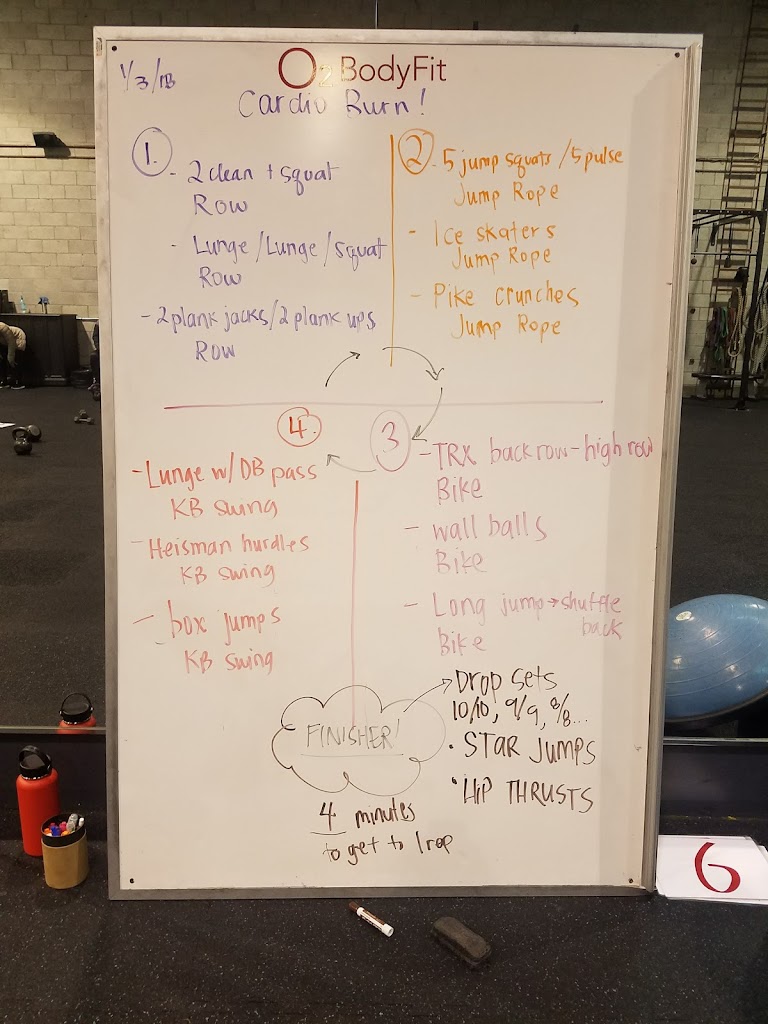 1/3/18
O2 BodyFit
Cardio Burn!
1.
- 2 clean + squat
Row
- Lunge/Lunge/squat
Row
- 2 plank jacks/2 plank ups
Row
2
- 5 jump squats/5 pulse
Jump Rope
- Ice skaters
Jump Rope
- Pike crunches
Jump Rope
3
- TRX back row - high row
Bike
- wall balls
Bike
- Long jump → shuffle
back
Bike
4.
- Lunge w/ DB pass
KB swing
- Heisman hurdles
KB swing
- box jumps
KB swing
FINISHER!
→ Drop sets
10/10, 9/9, 8/8...
• STAR JUMPS
• HIP THRUSTS
4 minutes
to get to 1 rep
6